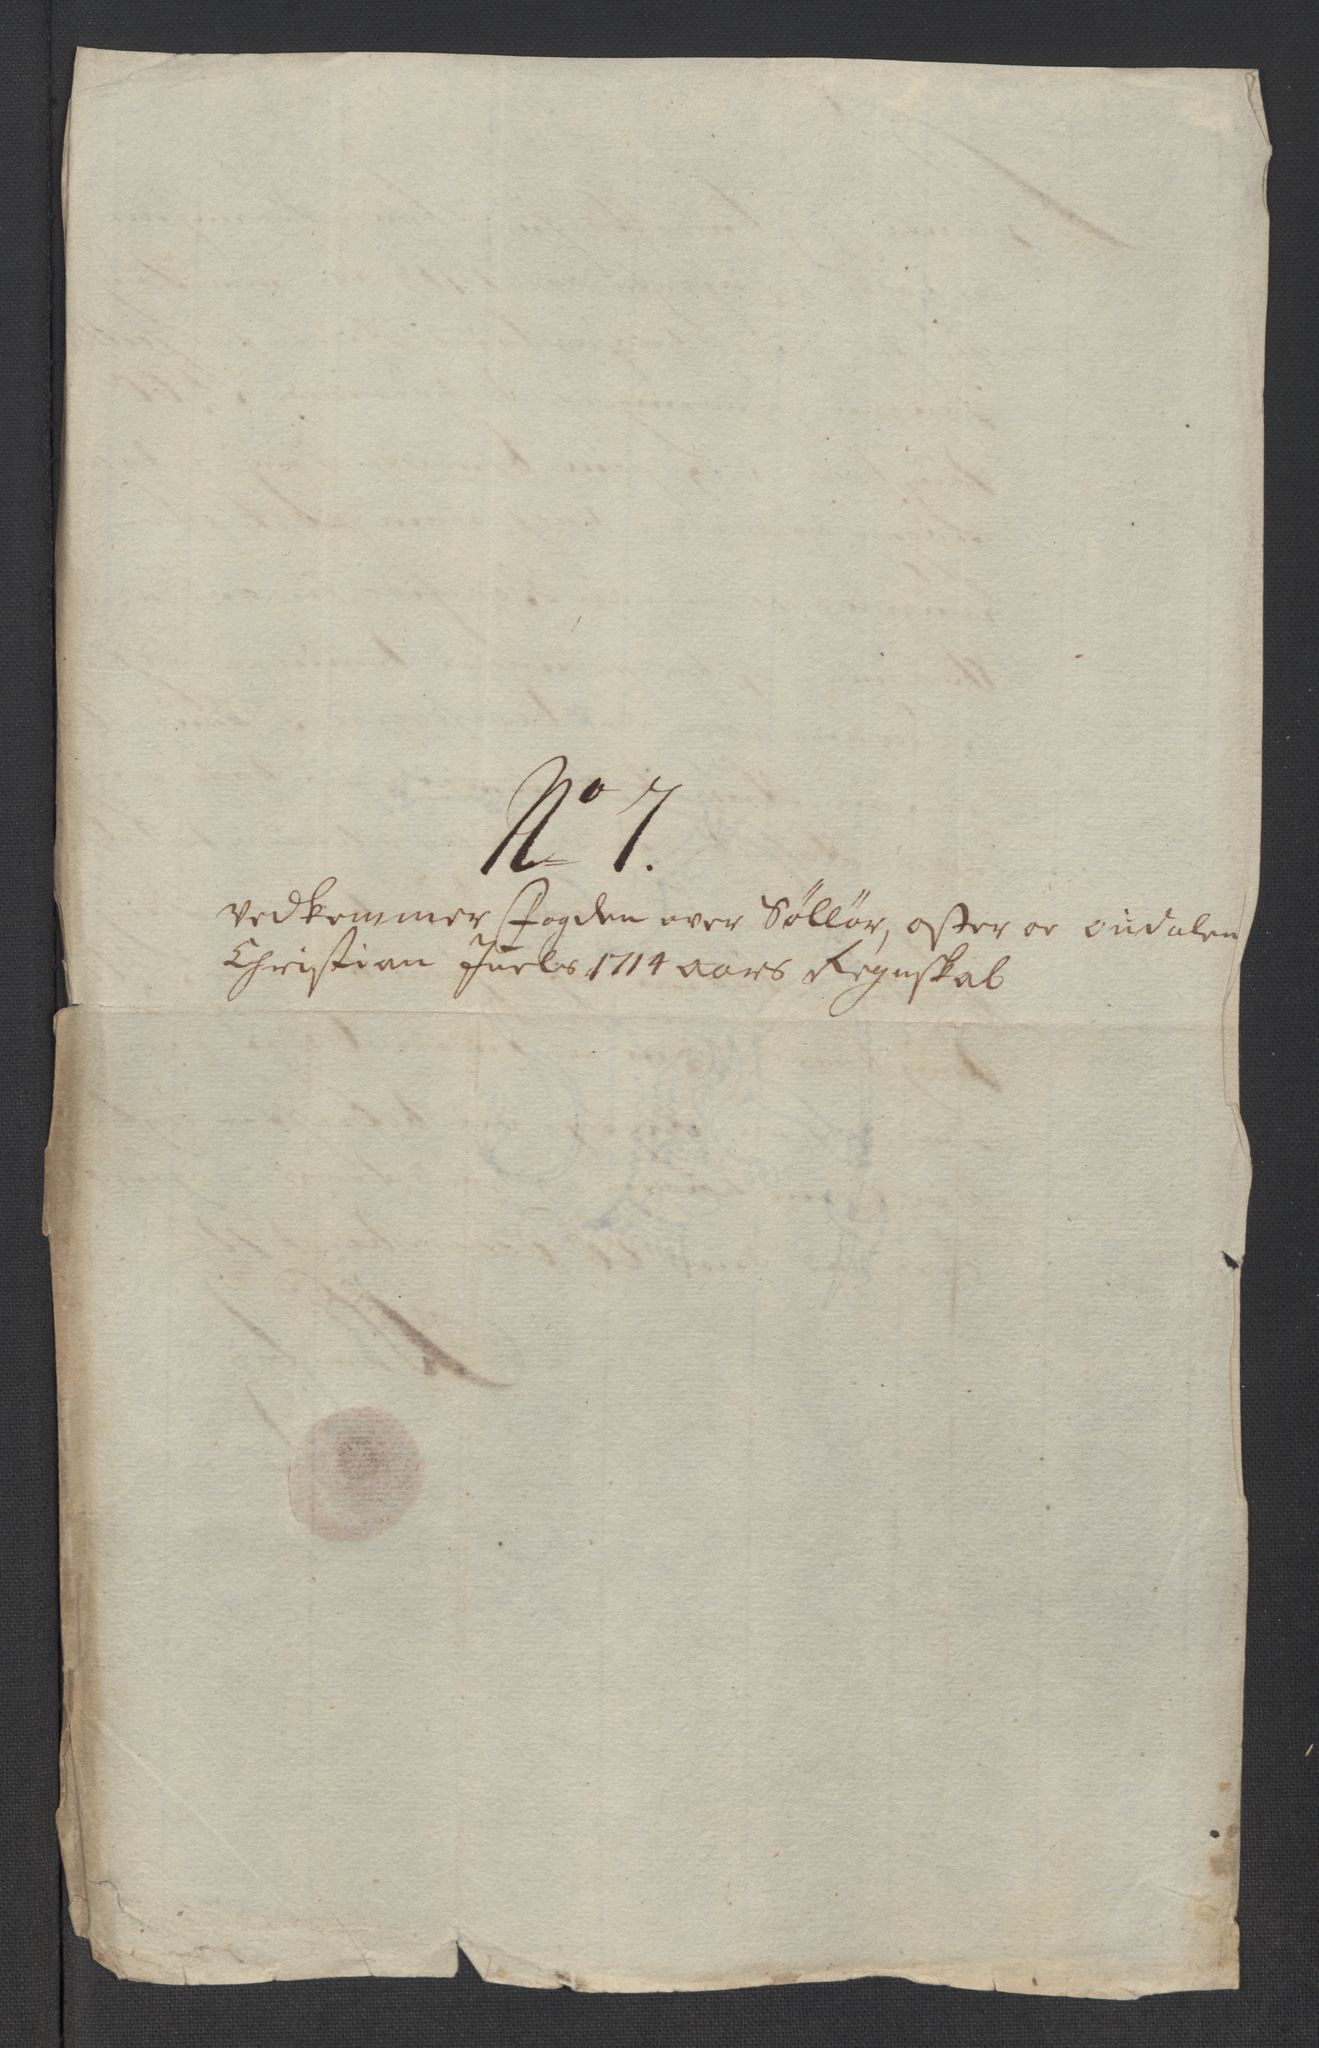 No 7.
vedkommer Fogden over Sollör, oster oc oudalen
Christian Juels 1714 aars Regnskab